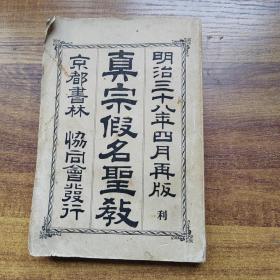 明治三十八年四月再版
利
真宗假名聖教
京都書林 協同會發行